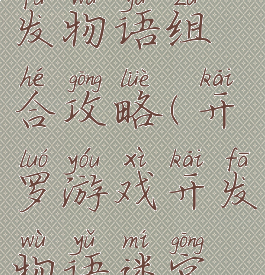 fā wù yǔ zǔ
发物语组
hé gōng lüè kāi
合攻略(开
luó yóu xì kāi fā
罗游戏开发
wù yǔ mí gōng
物语迷宫